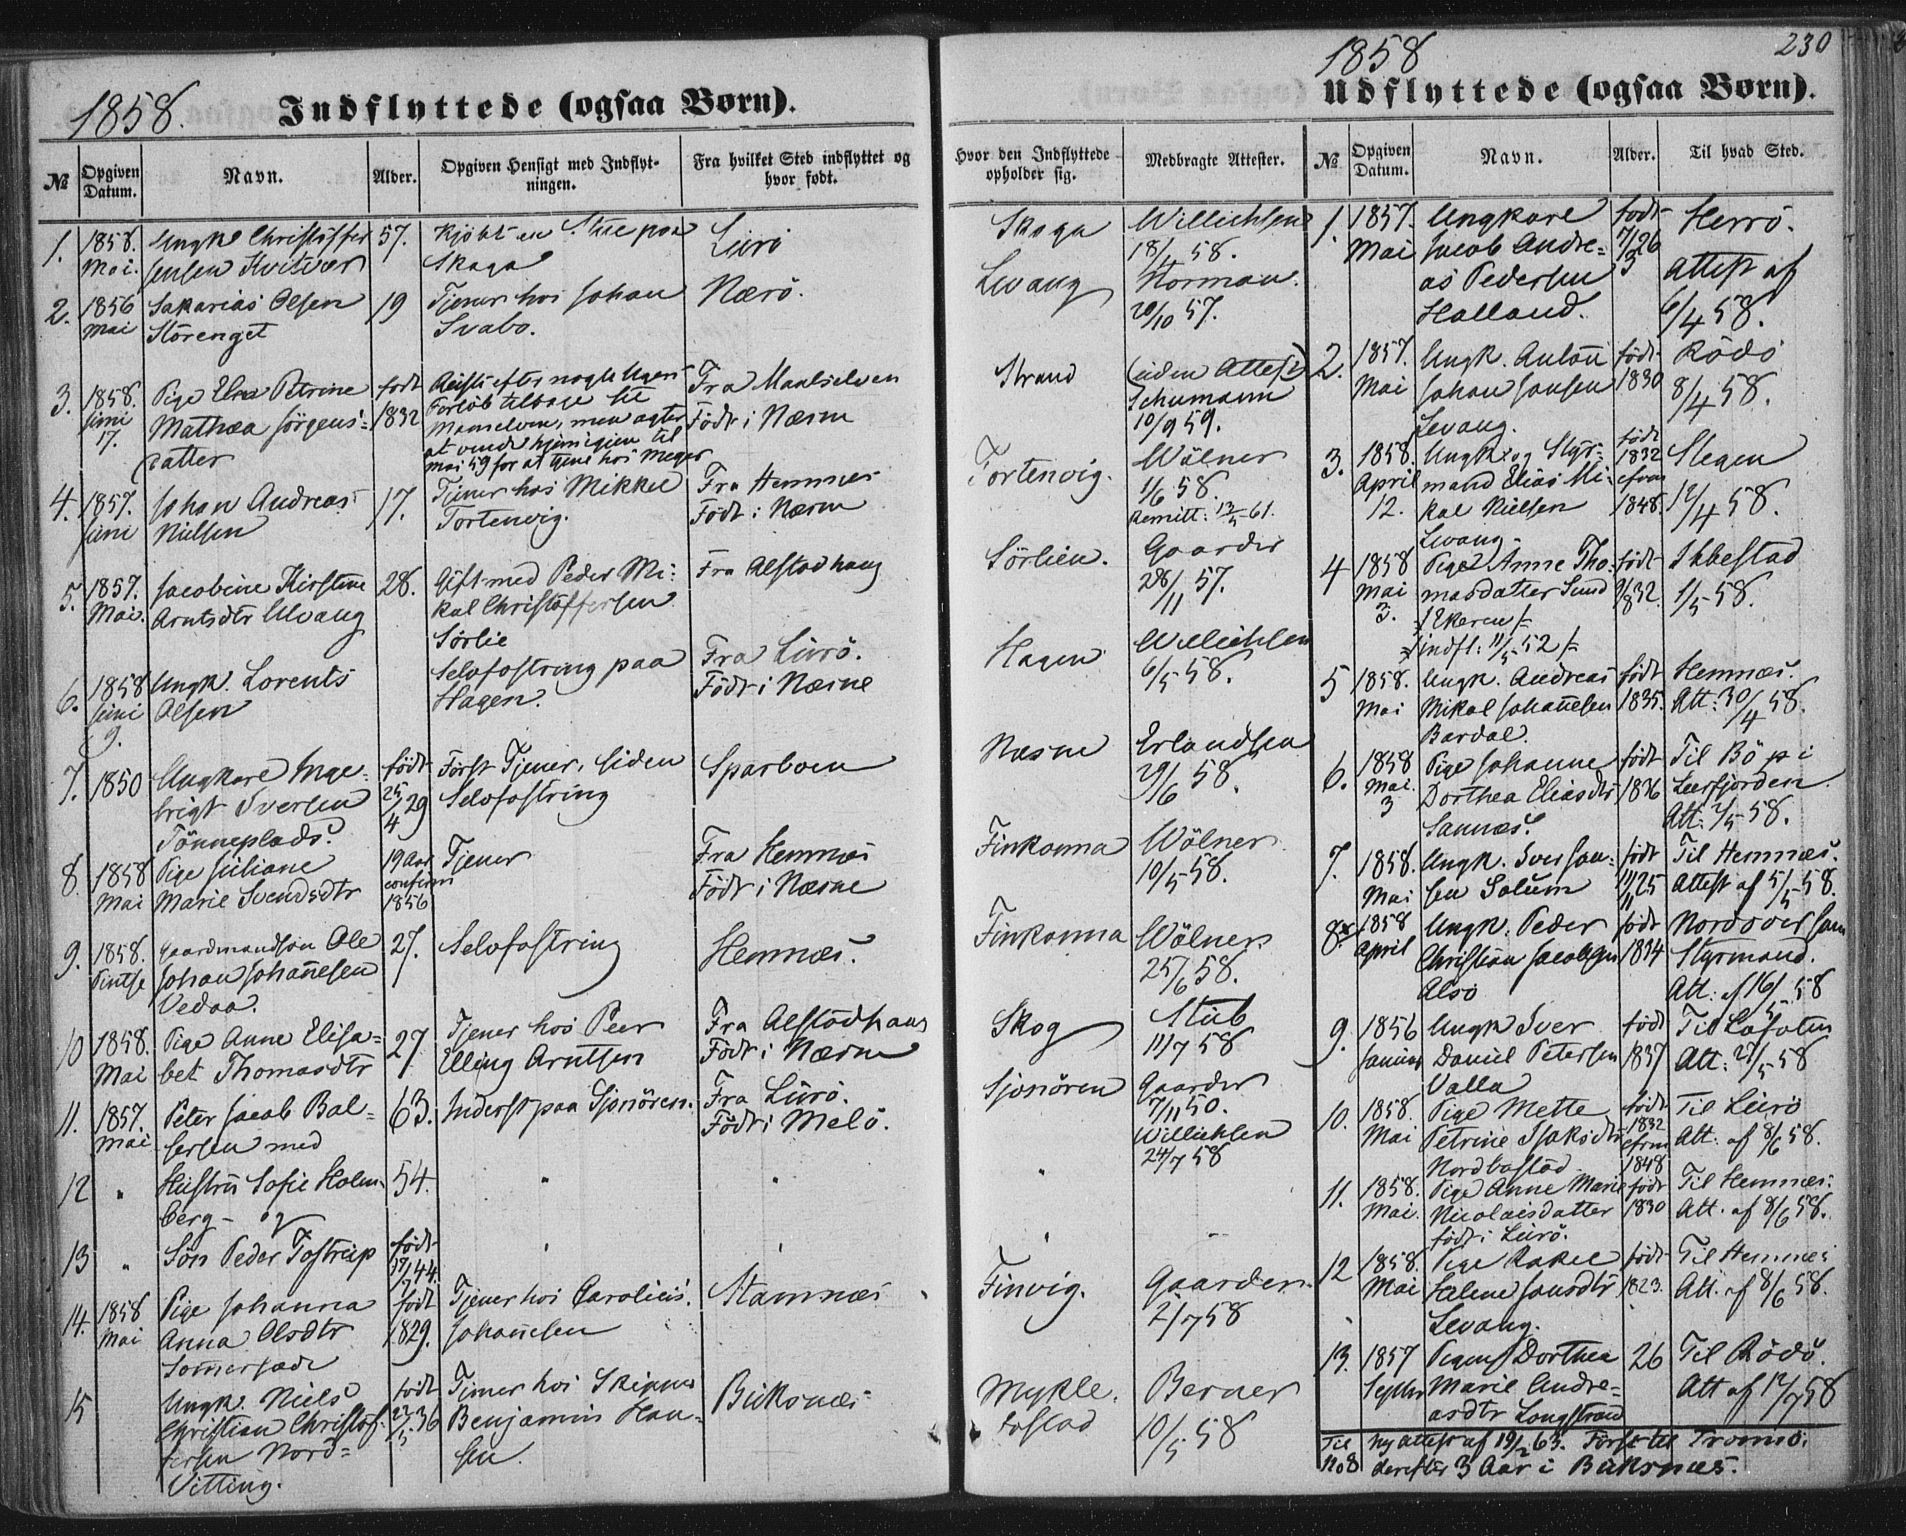 1858.
Indflyttede (ogsaa Børn).
№
Opgiven Datum.
Navn.
Alder.
Opgiven Hensigt med Indflytningen.
Fra hvilket Sted indflyttet og hvor født.
1. 1858. Mai. Ungk. Christoffer Jensen Kvitvær 57. Kjøbt en Stue paa Skaga Lurö
2. 1856 Mai Sakarias Olsen Störenget 19 Tjener hos Johan Svabo. Nærö.
3. 1858. Juni 17. Pige Elen Petrine Mathea Jörgensdatter født 1832 Reiste efter nogle Ugers Forløb tilbage til Maaselven, men agter at vende hjem igjen til Mai 59 for at tjene hos Meyer Fra Maalselven Födt i Næsne
4. 1857. Juni Johan Andreas Nielsen 17. Tjener hos Mikkel Tortenvig. Fra Hemnæs Födt i Næsne
5. 1857. Mai. Jacobine Kirstine Arntsdtr Ulvang 28. Gift med Peder Mikal Christoffersen Sörlie Fra Alstadhaug
6. 1858 Juni 9. Ungk. Lorents Olsen Selvfostring paa Hagen. Fra Lurö. Födt i Næsne
7. 1850 Ungkarl Ingebrigt Iversen Tönneplads. födt 25/4 29 Först Tjener, siden Selvfostring Sparboen
8. 1858 Mai Pige Juliane Marie Svendsdtr 19 Aar confirm 1856 Tjener Fra Hemnæs Födt i Næsne
9. 1858. Pintse Gaardmandsøn Ole Johan Johannesen Vedaa. 27. Selvfostring Hemnæs.
10 1858. Mai Pige Anne Elisabet Thomasdtr 27 Tjener hos Peer Elling Arntsen Fra Alstadhaug Födt i Næsne
11. 1857. Mai Peter Jacob Balsersen med 63. Inderst paa Sjonören. Fra Lurö. Födt i Melö.
12 " Hustru Sofie Holmberg - og 54. " "
13 " Sön Peder Tostrup födt 19/7 44. " "
14. 1858 Mai Pige Johanna Anna Olsdtr Sommersæde födt 1829. Tjener hos Carolius Johannesen Stamnæs
15 Ungk. Niels Christian Christoffersen Nord=Vitting. födt 22/5 36 Tjener hos Skipper Benjamin Hansen Buksnæs
1858
230
Udflyttede (ogsaa Børn).
Hvor den Indflyttede opholder sig.
Medbragte Attester.
№
Opgiven Datum.
Navn.
Alder.
Til hvad Sted.
Skaga Willichsen 18/4 58.
Levang Norman. 20/10 57.
Strand (uden Attest) Schumann 10/9 59.
Tortenvig. Wölner 1/6 58. Remitt: 12/5 61.
Sörlien. Gaarder 28/11 57.
Hagen Willichsen 6/5 58.
Næsne Erlandsen 29/6 58.
Finkonna Wölner 10/5 58.
Finkonna Wölner 25/6 58.
Skog Stub 11/7 58
Sjonören Gaarder 7/11 50. Willichsen 24/7 58
"
" "
Finvig. Gaarder. 2/7 58
Myklebostad Berner 10/5 58
1. 1857. Mai Ungkarl Jacob Andreas Pedersen Halland. födt 7/3 26 Herrö. Attest af 6/4 58.
2. 1857. Mai Ungk. Anton Johan Jansen Levang. födt 1830 Rödö 8/4 58.
3. 1858. April 12. Ungk. og Styrmand Elias Mikal Nielsen Levang födt 1832 cfrm 1848. Stegen 12/4 58.
4 1858 Mai 3. Pige Anne Thomasdatter Sund /: Ekeren :/ /: indfl: 11/5 52 :/ födt 1832. Ibbestad 1/5 58.
5 1858. Mai Ungk. Andreas Mikal Johannesen Bardal. födt 1835. Hemnæs. Att: 30/4 58.
6. 1858 Mai 3 Pige Johanne Dorthea Eliasdtr Sannæs. födt 1836 Til Bö i Leerfjorden Att: 2/5 58.
7. 1858. Mai Ungk. Iver Jonsen Solum födt 11/11 25 Til Hemnæs. Attest af 5/5 58.
8. 1858 April Ungk. Peder Christian Jacobsen Alsö födt 1834 Nordover som Styrmand. Att: af 16/5 58
9. 1856 Januar Ungk Iver Daniel Petersen Valla födt 1837 Til Lofoten Att: 21/5 58
10. 1858. Mai Pige Mette Petrine Isaksdtr Nordbostad födt 1832 cfrm 1848 Til Lurö Att. af 8/6 58.
11. 1858. Mai. Pige Anne Marie Nicolaisdatter födt i Lurö. födt 1830 Til Hemnæs. Att. af 8/6 58.
12 1858. Mai Pige Rakel Helene Jansdtr Levang. födt 1823. Til Hemnæs Att. af 8/6 58.
13. 1857 Septbr Pigen Dorthea Marie Andreasdtr Longstrand 26 Til Rödö. Att af 12/7 58
Til No 8 Ny Attest af 19/2 63. Först til Tromsö. derefter 3 Aar i Buksnæs.